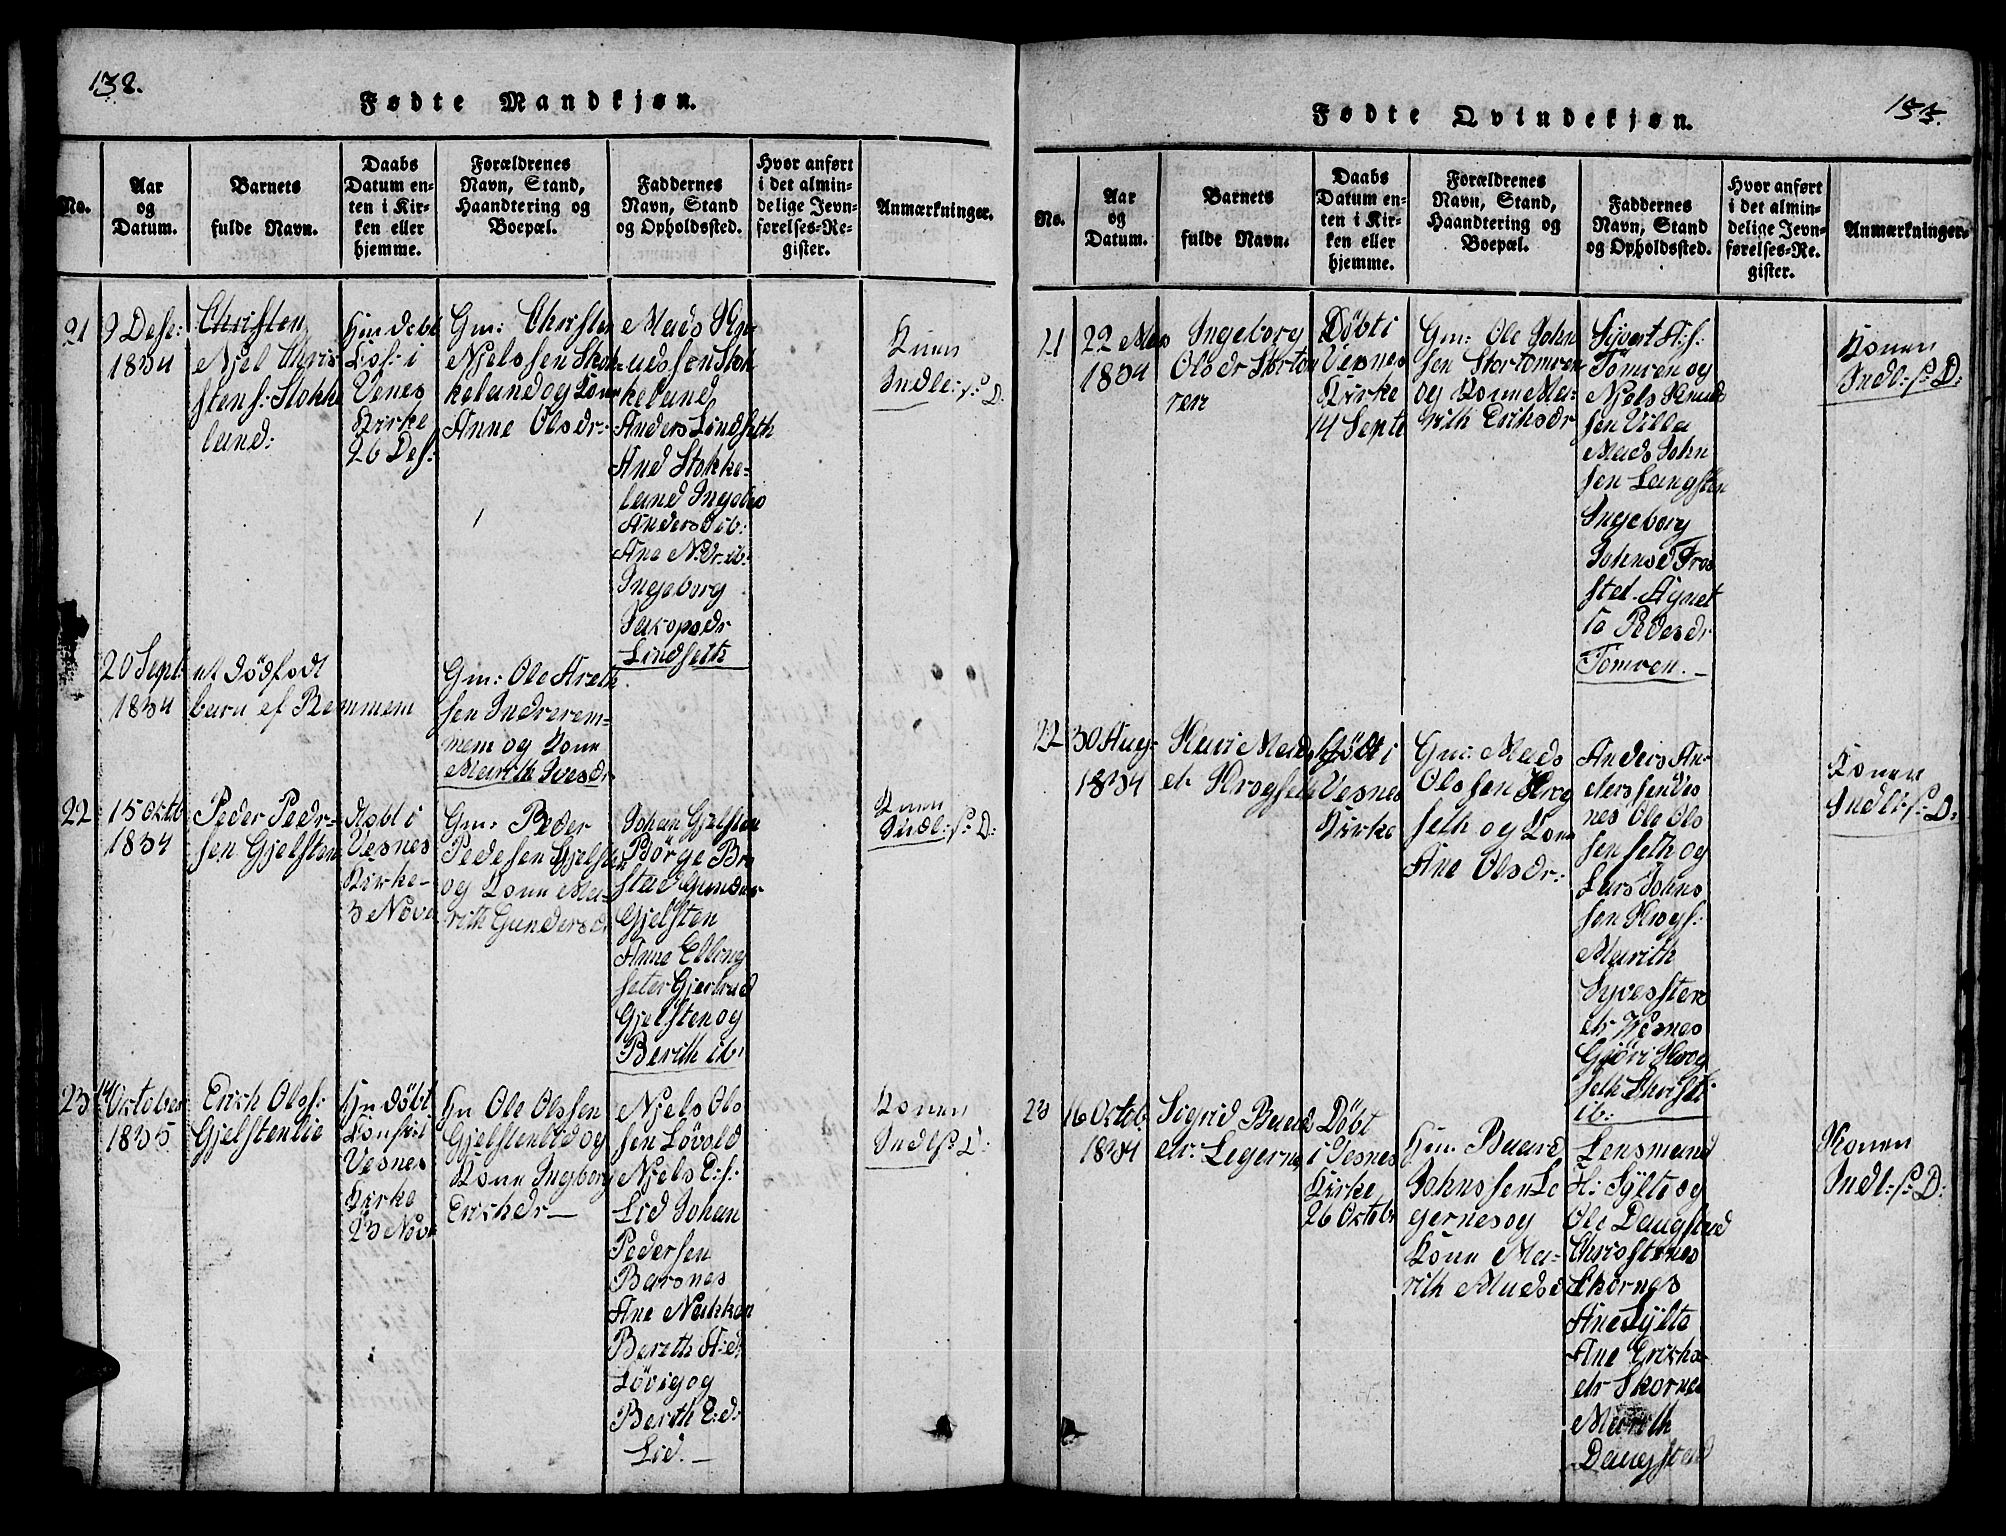 138.
Fødte Mandkjøn.
No.
Aar
og
Datum.
Barnets
fulde Navn.
Daabs
Datum en-
ten i Kir-
ken eller
hjemme.
Forældrenes
Navn, Stand,
Haandtering og
Boepæl.
Faddernes
Navn, Stand
og Opholdssted.
Hvor anført
i det almin-
delige Jevn-
førelses-Re-
gister.
Anmærkninger.
21
9 Dese:
1834
Christen
Njel Chris
stens: Stokke
land:
Hm døbt
i
Vesnes
Kirke
26 Des:
Gm: Christen
Njelssen Stok-
keland og Kone
Anne Olsdr:
Mads Knu
udssen Stok
keland
Anders Lindseth
And Stokke-
land Ingebor
Andersd ib:
Ane N:dr: ib:
Ingeborg
Jakopsdr
Lindseth
Konen
Indl: s: D:
20 Sept
1834
et dödfödt
barn af Remmem
Gm: Ole Areth
sen Indrerem-
mem og Kone
Marith Ivesdr
22
15 Oktb
1834
Peder Pedr-
sen Gjelsten
døbt i
Vesnes
Kirke
3 Nove
Gm: Peder
Pedesen Gjelsten
og Kone Ma-
rith Gundersd
Johan Gjelsten
Börge Bra
stad Gunder
Gjelsten
Anne Elbeng
seter Gjertrud
Gjelsten og
Berith ib:
Konen
Indl: s: D:
23
14
Oktober
1835
Erich Ols:
Gjelstenlie
Hm döbt
Konfert
Vesnes
Kirke
23 Nove
Hu Ole Olssen
Gjelstenlid og
Kone Ingborg
Erichdr
Njels Ols
sen Lövold
Njels E: s:
Lid Johan
Pedersen
Barsnes
Ane Nakken
Bereth A: d:
Lövig og
Berth E: d:
Lid.
Konen
Indl s: D:
133.
Fødte Qvindekjøn.
No.
Aar
og
Datum.
Barnets
fulde Navn.
Daabs
Datum en-
ten i Kir-
ken eller
hjemme.
Forældrenes
Navn, Stand,
Haandtering og
Boepæl.
Faddernes
Navn, Stand
og Opholdssted.
Hvor anført
i det almin-
delige Jevn-
førelses-Re-
gister.
Anmærkninger.
21
22
1834
Ingeborg
Olsdr Stortom
ren
Döbt i
Vesnes
Kirke
14 Septe
Gm: Ole John
sen Stortomren
og Kone Ma-
rith Eriksdr
Syvert A: s:
Tomren og
Njels Knud
sen Villa
Mads John
sen Langsten
Ingeborg
Johnsd Fros
stel. Agnet
Pedesdr
Tomren.
Konen
Indl: s: D:
22
30 Aug-
1834
Kari Mads
dr Krogseth
Döbt i
Vesnes
Kirke
Gm: Mads
Olssen Krog
seth og Kone
Ane Olsdr:
Anders An-
dersen Ves
nes Ole Ols
sen seth og
Lars Johns
sen Krogs:
Marith
Syvesster
dr Vesnes
Gjöri Krog
seth
ib:
Konen
Indl: s: D:
23
16 Octob
1834
Sigrid Baard
dr: Legernes
Döbt
i Vesnes
Kirke
26 Oktobr
Hm: Baard
Johnssen Le
gernes og
Kone Ma-
rith Madsd
Lensmand
H: Sylte og
Ole Daugstad
Christenes
Skornes
Ane Sylte
Ane Erichs
dr Skornes
Marith
Daugstad
Konen
Indl: s: D: